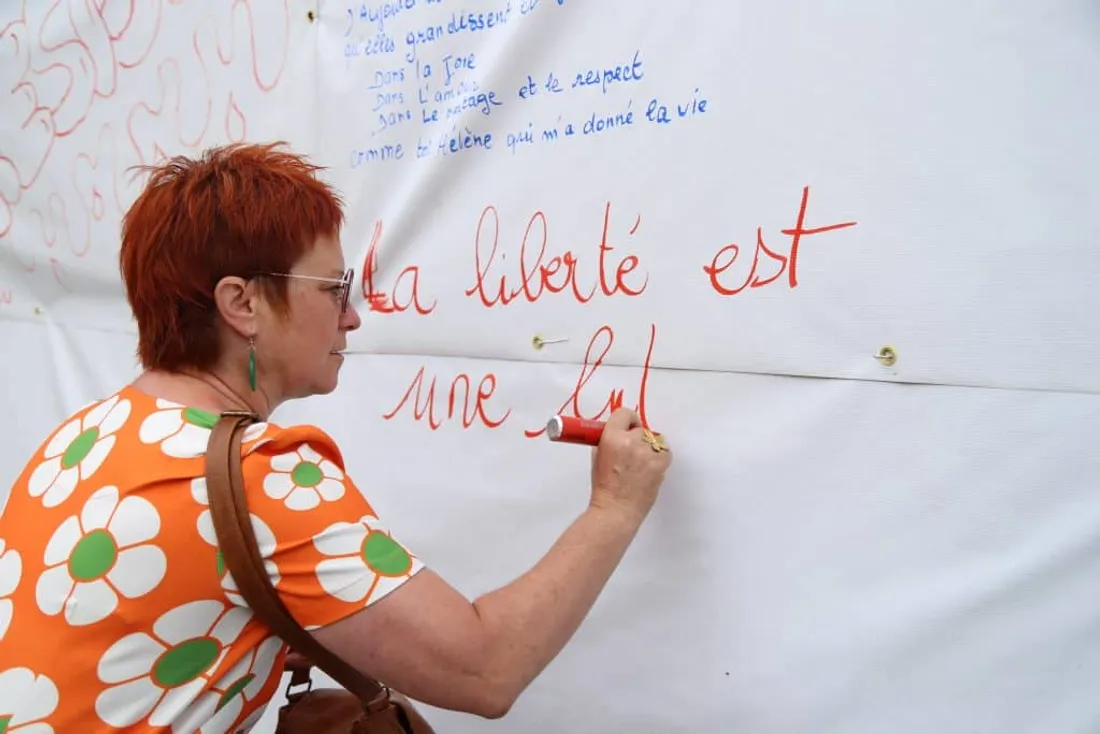 D'Aujourd
qu'elles grandissent et
Dans la Joie
Dans L'amour
Dans Le partage et le respect
comme toi Hélène qui m'a donné la vie
La liberté est
une lut